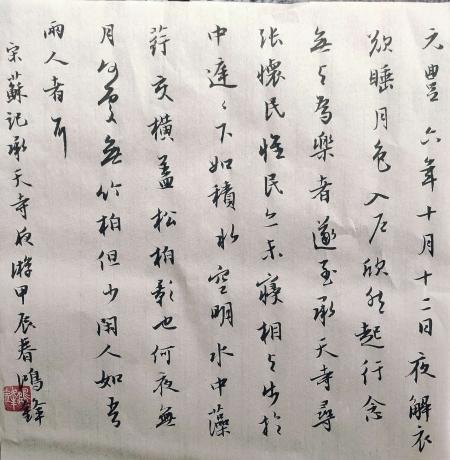 元豊六年十月十二日夜解衣
欲睡月色入户欣然起行念
無与為樂者遂至承天寺尋
张懷民怀民亦未寢相与步於
中庭々下如積水空明水中藻
荇交横蓋松柏影也何夜無
月何處無竹柏但少閑人如吾
兩人者耳
宋蘇记承天寺夜游甲辰春鴻鋒